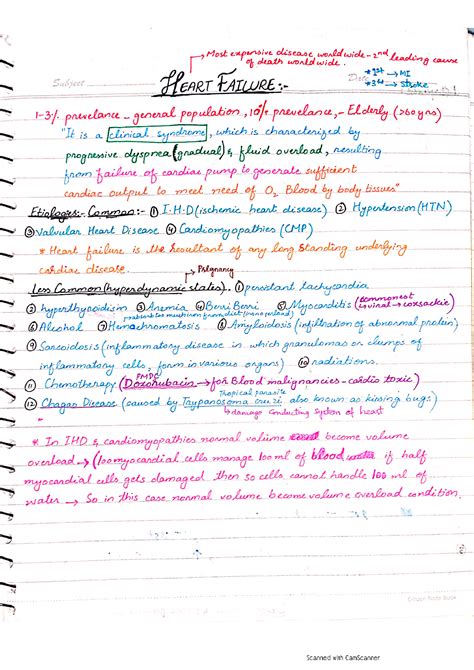 Most expensive disease worldwide - 2nd leading cause
of death worldwide.
Subject
HEART FAILURE:-
Date
*1st → MI
*3rd → Stroke
1-3% prevelance - general population, 10% prevelance, - Elderly (>60 yrs)
"It is a clinical syndrome, which is characterized by
progressive dyspnea (gradual) & fluid overload, resulting
from failure of cardiac pump to generate sufficient
cardiac output to meet need of O2 Blood by body tissues"
Etiologies:- Common:- ① I.H.D (ischemic heart disease) ② Hypertension (HTN)
③ Valvular Heart Disease ④ Cardiomyopathies (CMP)
* Heart failure is the resultant of any long standing underlying
cardiac disease.
Pregnancy
Less Common (hyperdynamic states). ① persistant tachycardia
② hyperthyoidism ③ Anemia ④ Berri Berri ⑤ Myocarditis (commonest
viral → coxsackie)
⑥ Alcohol ⑦ Hemochromatosis ⑧ Amyloidosis (infiltration of abnormal protein)
⑨ Sarcoidosis (inflammatory disease in which granulomas or clumps of
inflammatory cells, form in various organs) ⑩ radiations.
⑪ Chemotherapy (Doxorubacin → for Blood malignancies - cardio toxic)
Tropical parasite
⑫ Chagas Disease (caused by Trypanosoma cruzi also known as kissing bugs)
→ damage conducting system of heart
* In IHD & cardiomyopathies normal volume become volume
overload → (100 myocardial cells manage 100 ml of blood if half
myocardial cells gets damaged then so cells cannot handle 100 ml of
water → So in this case normal volume become volume overload condition.
Scanned with CamScanner